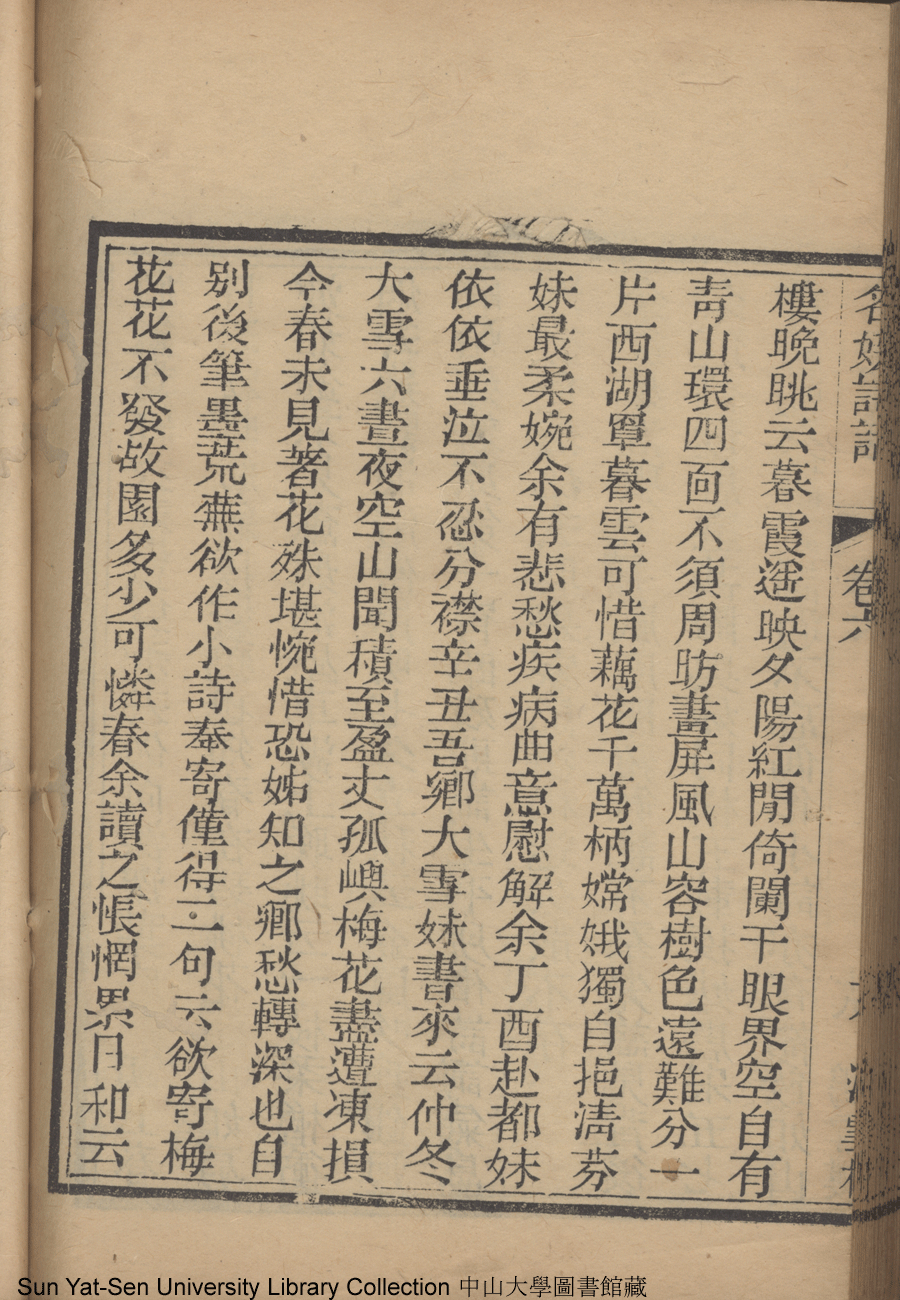 名媛詩話
卷六
樓晚眺云暮霞遥映夕陽紅閒倚闌干眼界空自有
青山環四面不須周昉畫屏風山容樹色遠難分一
片西湖罩暮雲可惜藕花千萬柄嫦娥獨自挹淸芬
妹最柔婉余有悲愁疾病曲意慰解余丁酉赴都妹
依依垂泣不忍分襟辛丑吾鄉大雪妹書來云仲冬
大雪六晝夜空山聞積至盈丈孤嶼梅花盡遭凍損
今春未見著花殊堪惋惜恐姊知之鄉愁轉深也自
别後筆墨荒蕪欲作小詩奉寄僅得二句云欲寄梅
花花不發故園多少可憐春余讀之悵惘累日和云
Sun Yat-Sen University Library Collection 中山大學圖書館藏